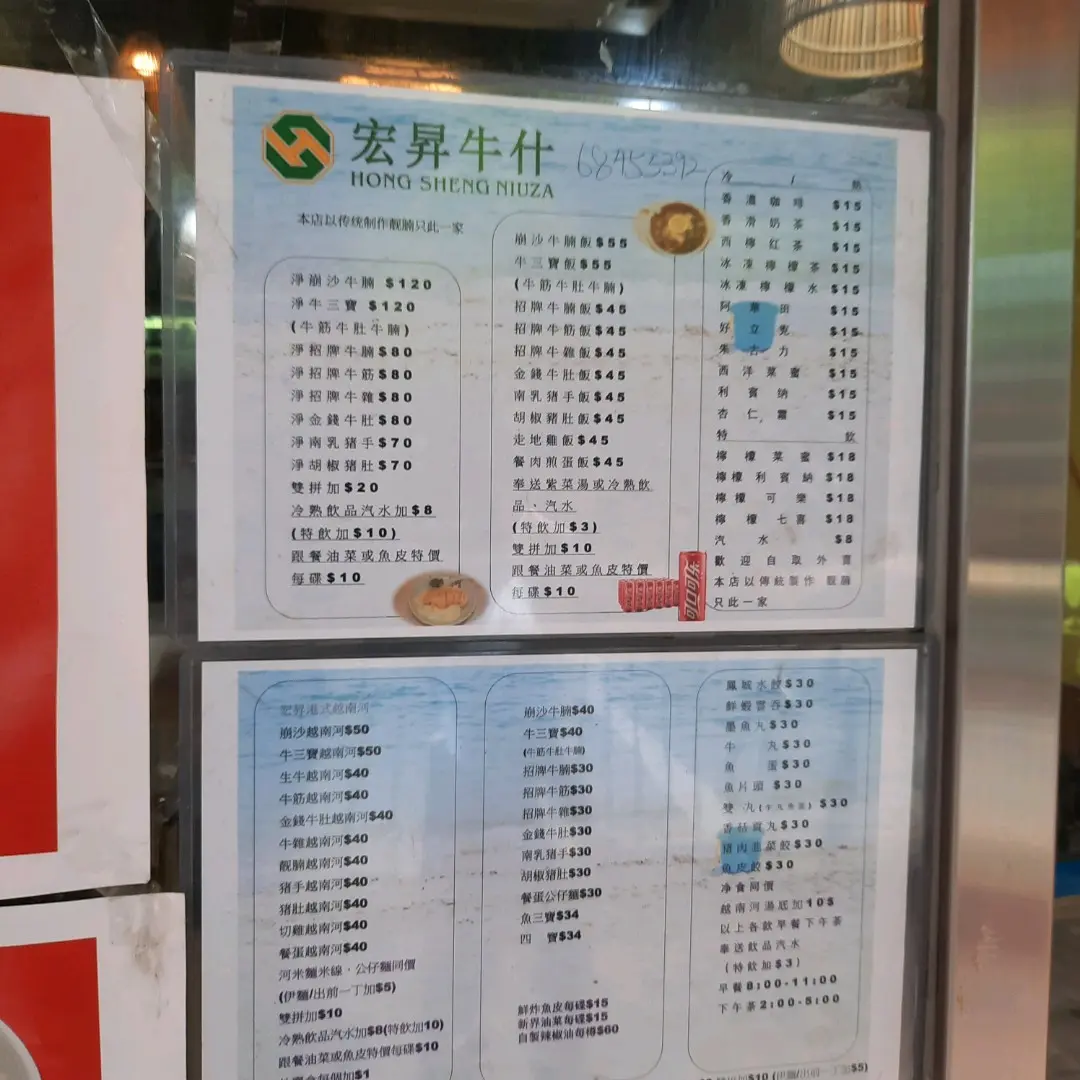 宏昇牛什
HONG SHENG NIUZA
68455392
本店以传统制作靓腩只此一家
淨崩沙牛腩 $120
淨牛三寶 $120
(牛筋牛肚牛腩)
淨招牌牛腩$80
淨招牌牛筋$80
淨招牌牛雜$80
淨金錢牛肚$80
淨南乳猪手$70
淨胡椒猪肚$70
雙拼加$20
冷熱飲品汽水加$8
(特飲加$10)
跟餐油菜或魚皮特價
每碟$10
崩沙牛腩飯$55
牛三寶飯$55
(牛筋牛肚牛腩)
招牌牛腩飯$45
招牌牛筋飯$45
招牌牛雜飯$45
金錢牛肚飯$45
南乳猪手飯$45
胡椒豬肚飯$45
走地雞飯$45
餐肉煎蛋飯$45
奉送紫菜湯或冷熱飲
品、汽水
(特飲加$3)
雙拼加$10
跟餐油菜或魚皮特價
每碟$10
冷 / 熱
香濃咖啡 $15
香滑奶茶 $15
西檸紅茶 $15
冰凍檸檬茶 $15
冰凍檸檬水 $15
阿華田 $15
好立克 $15
朱古力 $15
西洋菜蜜 $15
利賓納 $15
杏仁霜 $15
特飲
檸檬菜蜜 $18
檸檬利賓納 $18
檸檬可樂 $18
檸檬七喜 $18
汽水 $8
歡迎自取外賣
本店以傳統製作靚腩
只此一家
宏昇港式越南河
崩沙越南河$50
牛三寶越南河$50
生牛越南河$40
牛筋越南河$40
金錢牛肚越南河$40
牛雜越南河$40
靚腩越南河$40
猪手越南河$40
猪肚越南河$40
切雞越南河$40
餐蛋越南河$40
河米麵米線、公仔麵同價
(伊麵/出前一丁加$5)
雙拼加$10
冷熱飲品汽水加$8(特飲加10)
跟餐油菜或魚皮特價每碟$10
每個加$1
崩沙牛腩$40
牛三寶$40
(牛筋牛肚牛腩)
招牌牛腩$30
招牌牛筋$30
招牌牛雜$30
金錢牛肚$30
南乳猪手$30
胡椒猪肚$30
餐蛋公仔麵$30
魚三寶$34
四 寶$34
鮮炸魚皮每碟$15
新界油菜每碟$15
自製辣椒油每樽$60
鳳城水餃$30
鮮蝦雲吞$30
墨魚丸$30
牛 丸$30
魚 蛋$30
魚片頭 $30
雙丸(牛丸魚蛋) $30
香菇貢丸$30
猪肉韮菜餃$30
魚皮餃$30
净食同價
越南河湯底加10$
以上各款早餐下午茶
奉送飲品汽水
(特飲加$3)
早餐8:00-11:00
下午茶2:00-5:00
加$10 (伊麵/出前一丁加$5)